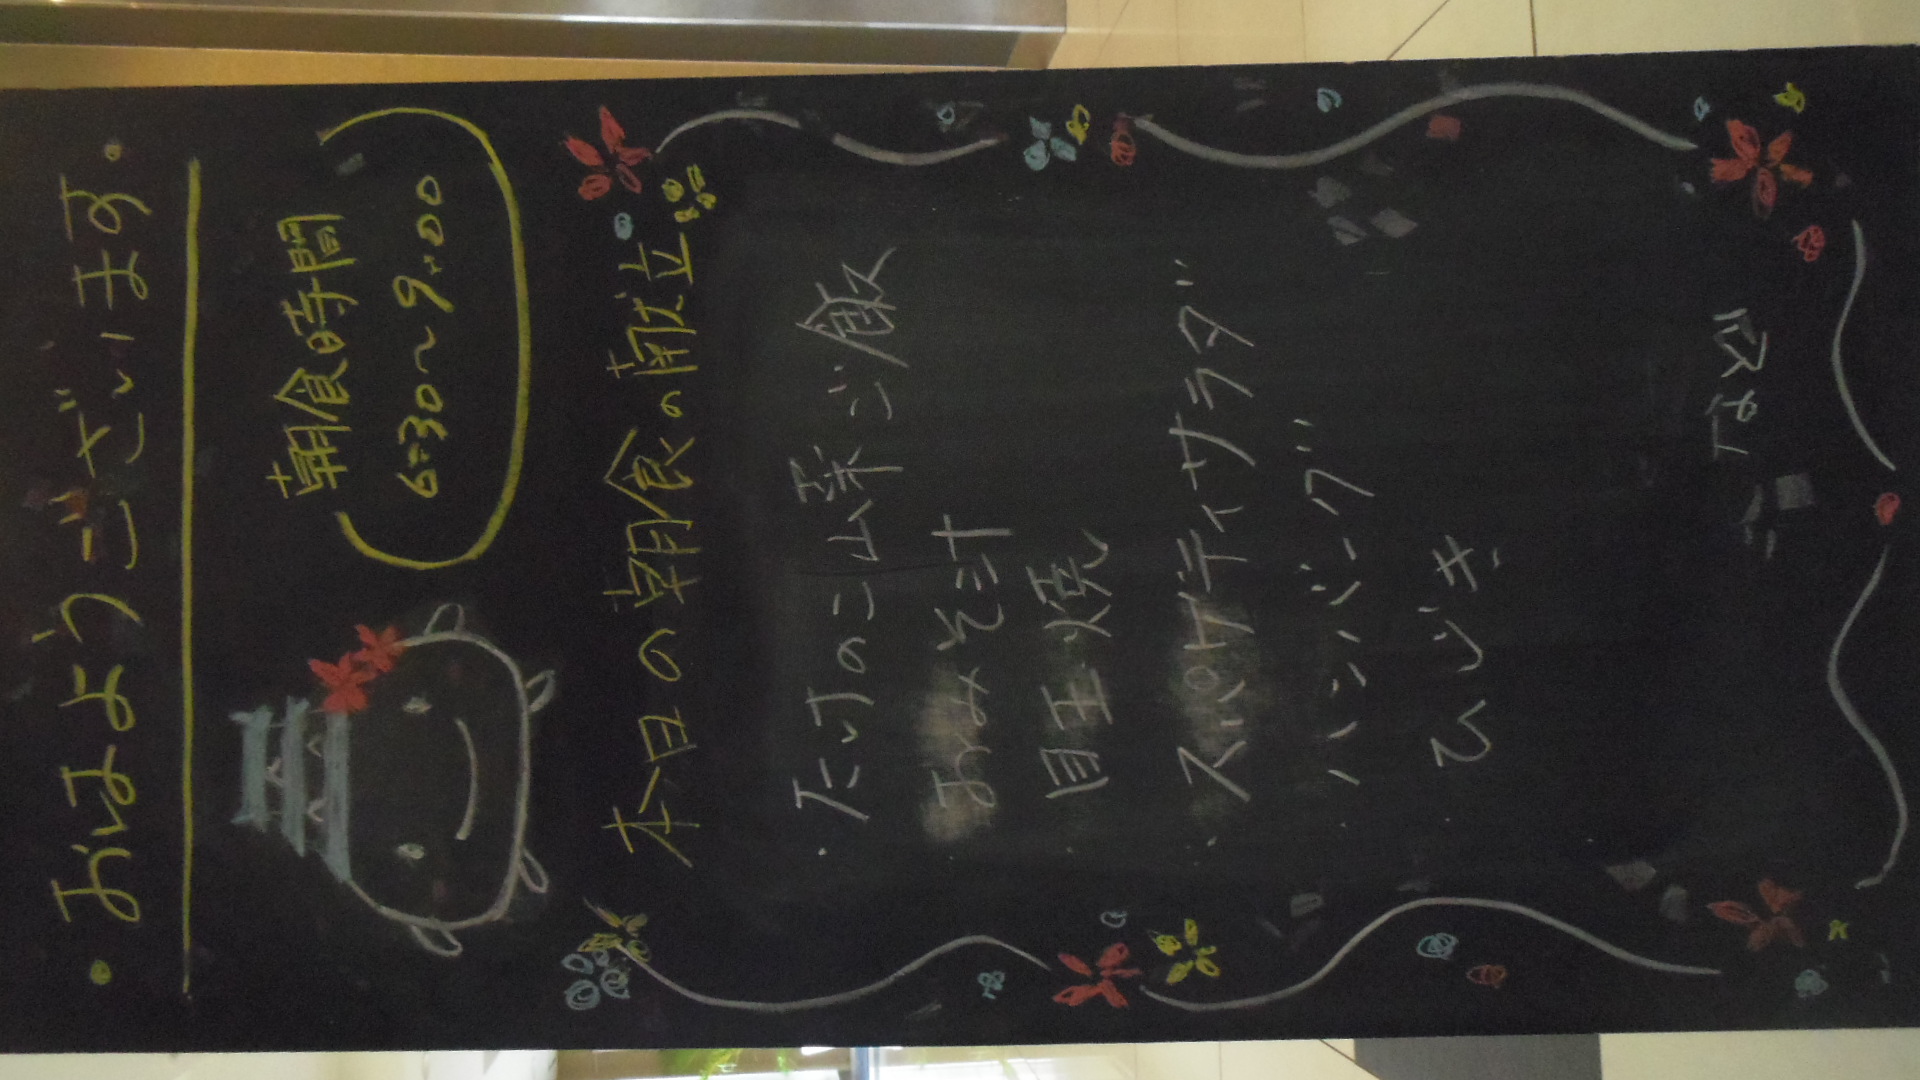 おはようございます。
朝食時間
6:30～9:00
本日の朝食の献立
・たけのこ山菜ご飯
・おみそ汁
・目玉焼
・スパゲティサラダ
・ハンバーグ
・ひじき